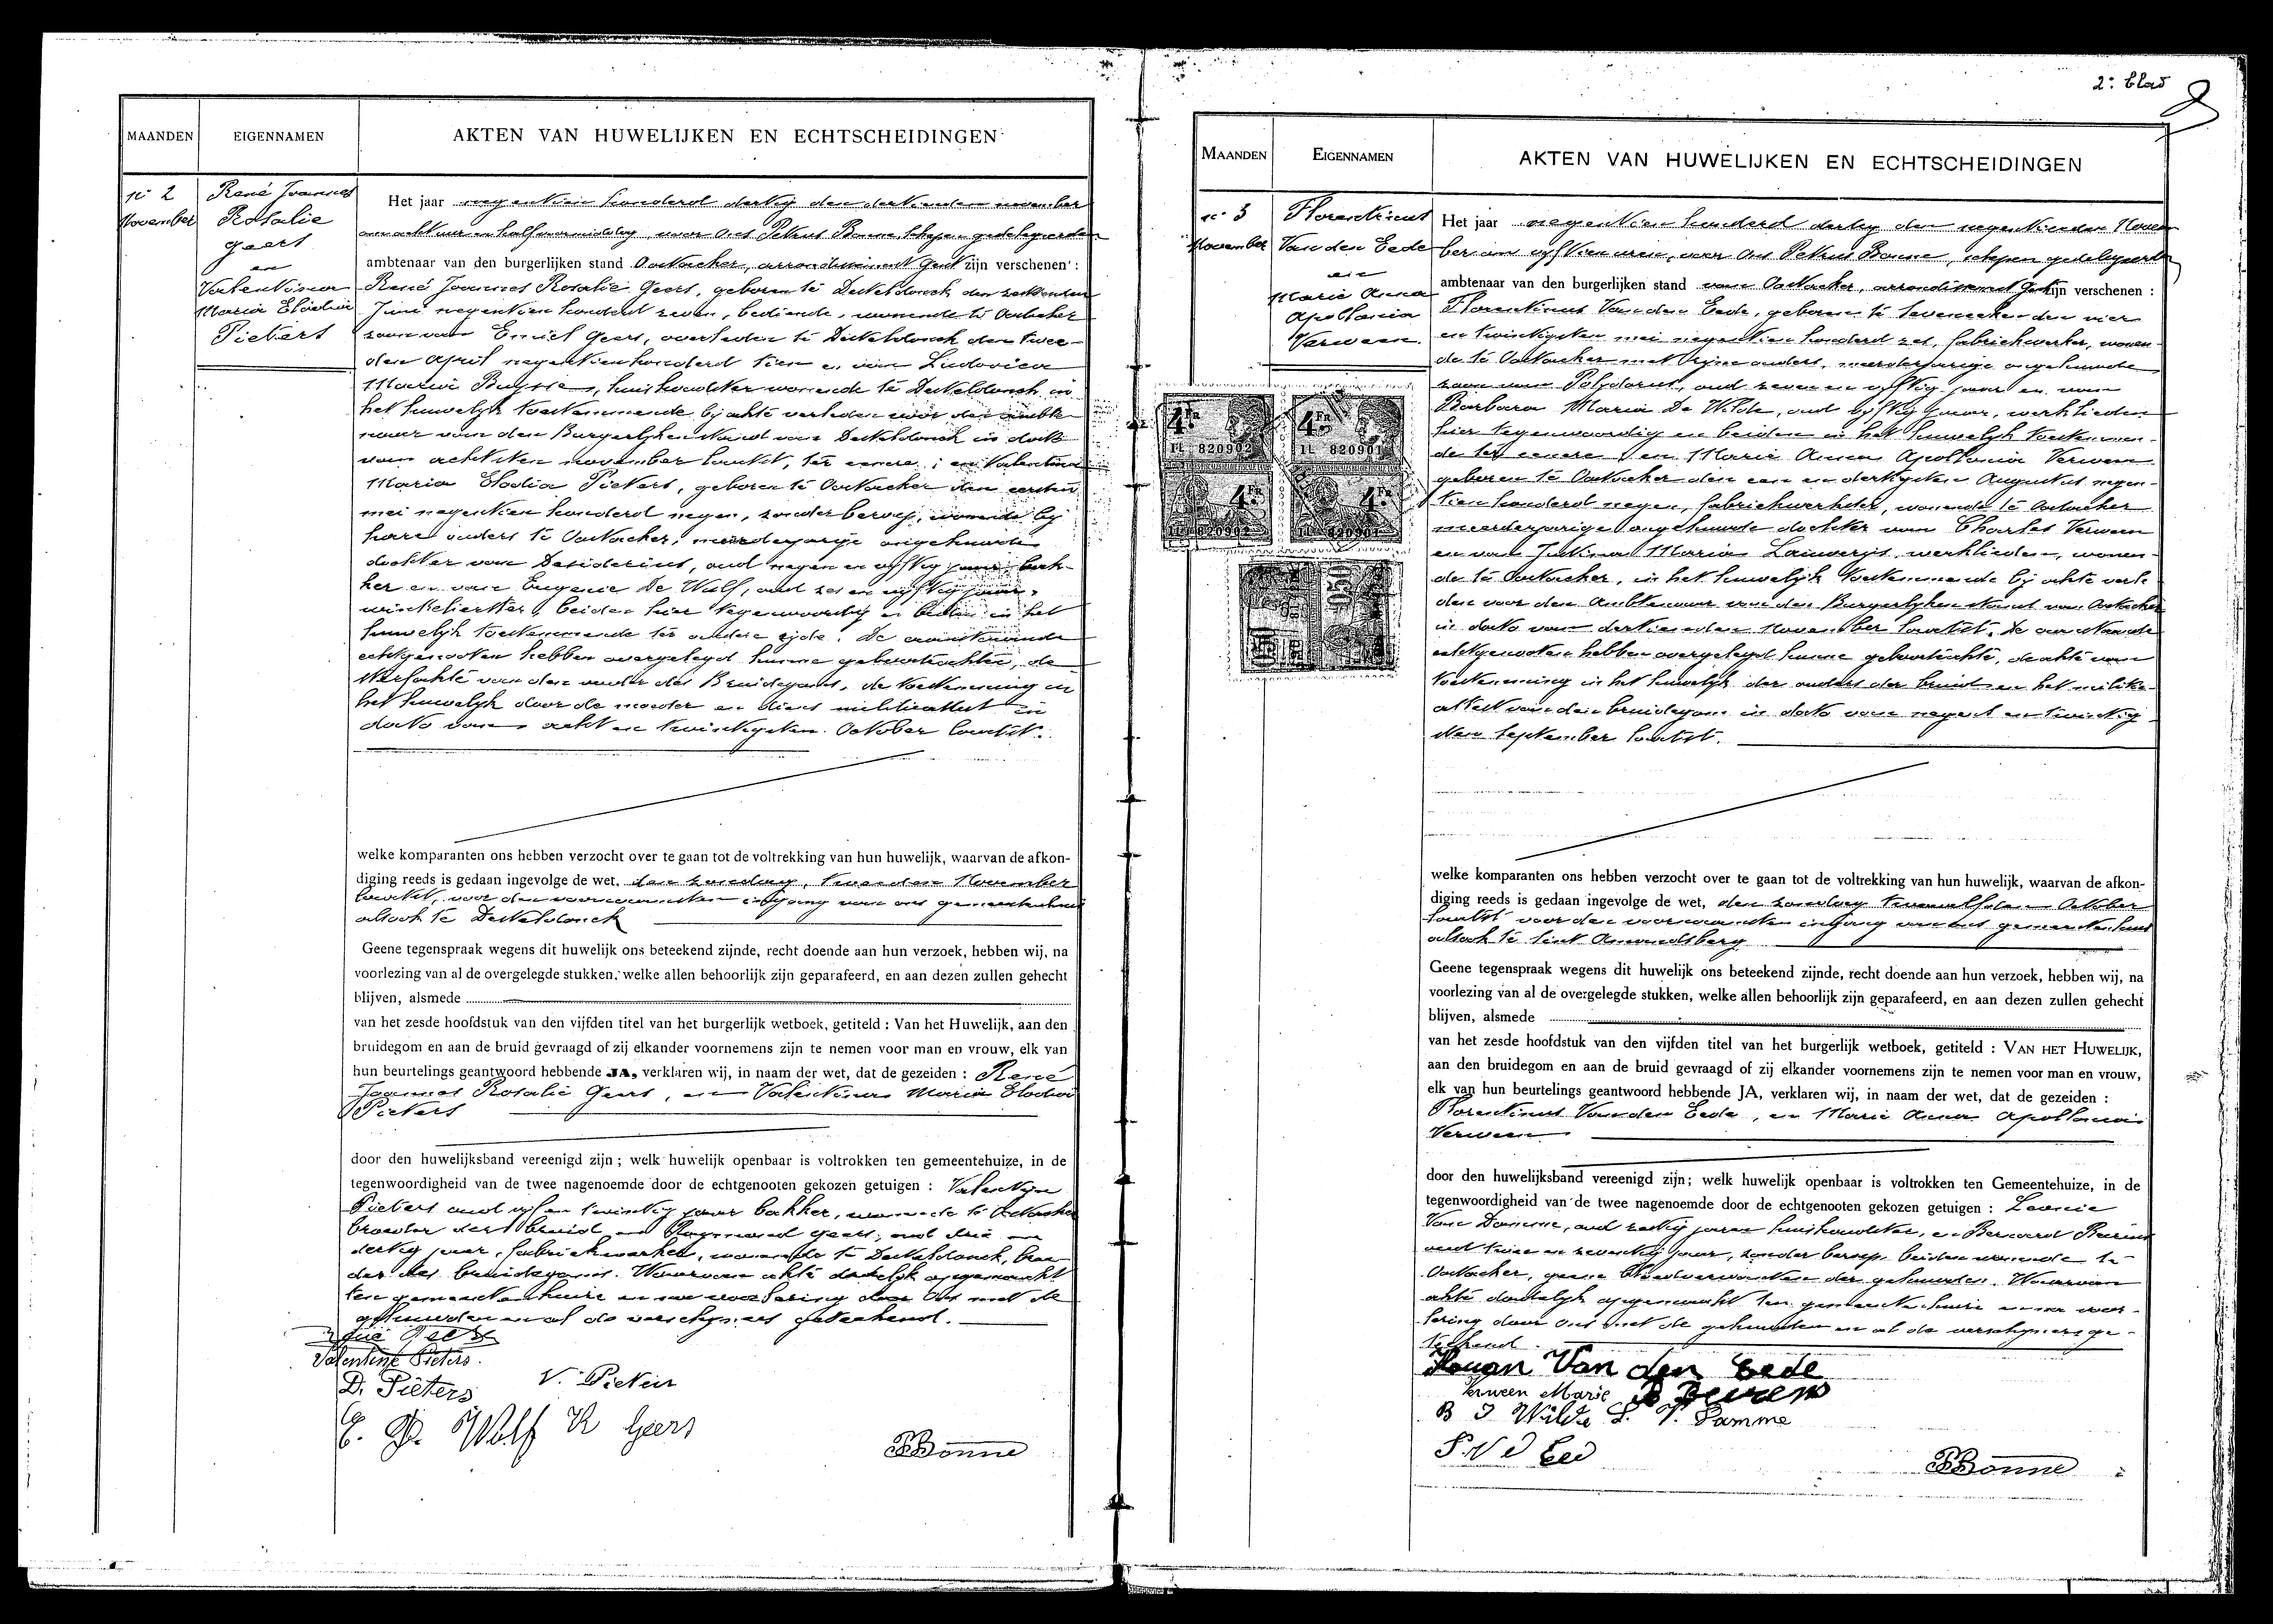 2e blad
MAANDEN
EIGENNAMEN
AKTEN VAN HUWELIJKEN EN ECHTSCHEIDINGEN
n° 2
November
René Joannes
Rosalie
Geers
en
Valentina
Maria Elodia
Pieters
Het jaar negentien honderd dertig den dertienden november
om acht uur en half voormiddag, voor Ons Petrus Bonne, schepen gedelegeerden
ambtenaar van den burgerlijken stand Oostacker, arrondissement Gent zijn verschenen :
René Joannes Rosalie Geers, geboren te Desteldonck den
Juni negentien honderd zeven, bediende, wonende te Oostacker
zoon van Emiel Geers, overleden te Desteldonck den twee-
den April negentienhonderd tien en van Ludovica
Maria Buysse, huishoudster wonende te Desteldonck in
het huwelijk toestemmende bij akte verleden voor den ambte-
naar van den Burgerlijken stand van Desteldonck in dato
van achtsten november laatst, ter eenere ; en Valentina
Maria Elodia Pieters, geboren te Oostacker den eersten
mei negentien honderd negen, zonder beroep, wonende bij
hare ouders te Oostacker, meerderjarige ongehuwde
dochter van Desiderius, oud negen en vijftig jaar, bak-
ker en van Eugenie De Wulf, oud zes en vijftig jaar,
winkelierster, beiden hier tegenwoordig en beiden in het
huwelijk toestemmende ter andere zijde. De aanstaande
echtgenooten hebben overgelegd hunne geboorteakten, de
sterfakte van den vader des Bruidegoms, de toestemming in
het huwelijk door de moeder en diens militieattest in
dato van acht en twintigsten October laatst.
welke komparanten ons hebben verzocht over te gaan tot de voltrekking van hun huwelijk, waarvan de afkon-
diging reeds is gedaan ingevolge de wet, den zondag, tweeden November
laatst, voor den voornaamsten ingang van ons gemeentehuis
alsook te Desteldonck
Geene tegenspraak wegens dit huwelijk ons beteekend zijnde, recht doende aan hun verzoek, hebben wij, na
voorlezing van al de overgelegde stukken, welke allen behoorlijk zijn geparafeerd, en aan dezen zullen gehecht
blijven, alsmede
van het zesde hoofdstuk van den vijfden titel van het burgerlijk wetboek, getiteld : Van het Huwelijk, aan den
bruidegom en aan de bruid gevraagd of zij elkander voornemens zijn te nemen voor man en vrouw, elk van
hun beurtelings geantwoord hebbende JA, verklaren wij, in naam der wet, dat de gezeiden : René
Joannes Rosalie Geers, en Valentina Maria Elodia
Pieters
door den huwelijksband vereenigd zijn ; welk huwelijk openbaar is voltrokken ten gemeentehuize, in de
tegenwoordigheid van de twee nagenoemde door de echtgenooten gekozen getuigen : Valentijn
Pieters oud vijf en twintig jaar bakker, wonende te Oostacker
broeder der bruid en Raymond Geers, oud drie en
dertig jaar, fabriekwerker, wonende te Desteldonck, broe-
der des bruidegoms. Waarvan akte dadelijk opgemaakt
ten gemeentenhuize en na voorlezing door Ons met de
gehuwden en al de verschijners geteekend.
René Geers
Valentine Pieters.
D. Pieters
V. Pieters
E. D. Wolf
R Geers
PBonne
MAANDEN
EIGENNAMEN
AKTEN VAN HUWELIJKEN EN ECHTSCHEIDINGEN
n° 3
November
Florentinus
Van den Eede
en
Marie Anna
Apollonia
Verween
Het jaar negentien honderd dertig den negentienden Novem
ber om vijftien uren, voor Ons Petrus Bonne, schepen gedelegeerden
ambtenaar van den burgerlijken stand van Oostacker, arrondissement Gent zijn verschenen :
Florentinus Van den Eede, geboren te Seveneeken den vier
en twintigsten mei negentien honderd zes, fabriekwerker, wonen-
de te Oostacker met zijne ouders, meerderjarige ongehuwde
zoon van Polydorus, oud zeven en vijftig jaar en van
Barbara Maria De Wilde, oud vijftig jaar, werklieden
hier tegenwoordig en beiden in het huwelijk toestemmen-
de ter eenere, en Marie Anna Apollonia Verween
geboren te Oostacker den een en dertigsten Augustus negen-
tien honderd negen, fabriekwerkster, wonende te Oostacker
meerderjarige ongehuwde dochter van Charles Verween
en van Maria werklieden, wonen-
de te Oostacker, in het huwelijk toestemmende bij akte verle-
den voor den Ambtenaar van den Burgerlijken stand van Oostacker
in dato van dertienden November laatst. De aanstaande
echtgenooten hebben overgelegd hunne geboorteakte, de akte van
toestemming in het huwelijk der ouders der bruid en het militie-
attest van den bruidegom in dato van negen en twintig-
sten September laatst.
welke komparanten ons hebben verzocht over te gaan tot de voltrekking van hun huwelijk, waarvan de afkon-
diging reeds is gedaan ingevolge de wet, den zondag twaalfden October
laatst voor den voornaamsten ingang van ons gemeentenhuis
alsook te Sint Amandsberg
Geene tegenspraak wegens dit huwelijk ons beteekend zijnde, recht doende aan hun verzoek, hebben wij, na
voorlezing van al de overgelegde stukken, welke allen behoorlijk zijn geparafeerd, en aan dezen zullen gehecht
blijven, alsmede
van het zesde hoofdstuk van den vijfden titel van het burgerlijk wetboek, getiteld : VAN HET HUWELIJK,
aan den bruidegom en aan de bruid gevraagd of zij elkander voornemens zijn te nemen voor man en vrouw,
elk van hun beurtelings geantwoord hebbende JA, verklaren wij, in naam der wet, dat de gezeiden :
Florentinus Van den Eede, en Marie Anna Apollonia
Verween
door den huwelijksband vereenigd zijn; welk huwelijk openbaar is voltrokken ten Gemeentehuize, in de
tegenwoordigheid van de twee nagenoemde door de echtgenooten gekozen getuigen : Leonie
Van Damme, oud zestig jaren huishoudster, en Bernard Beirens
oud twee en zeventig jaar, zonder beroep beiden wonende te
Oostacker, geene bloedverwanten der gehuwden. Waarvan
akte dadelijk opgemaakt ten gemeentenhuize en na voor-
lezing door ons met de gehuwden en al de verschijners ge-
teekend.
Van den Eede
Verween Marie
B D Wilde
L. V. Damme
P. V d Eed
PBonne
4 FR
1L 820902
4 FR
1L 820901
4 FR
1L 820902
4 FR
1L 820901